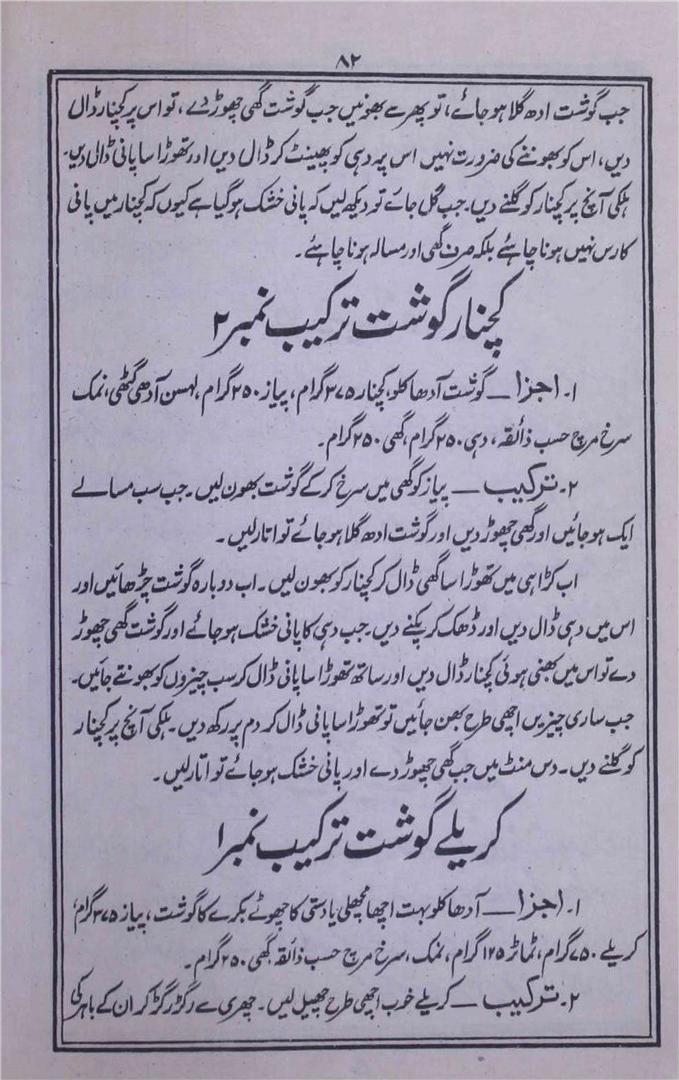 ۸۲
جب گوشت ادھ گلا ہو جائے، تو پھر سے بھونیں جب گوشت گھی چھوڑ دے، تو اس پر کچنار ڈال
دیں، اس کو بھوننے کی ضرورت نہیں اس پہ دہی کو پھینٹ کر ڈال دیں اور تھوڑا سا پانی ڈالی دیں۔
ہلکی آنچ پر کچنار کو گلنے دیں۔ جب گل جائے تو دیکھ لیں کہ پانی خشک ہو گیا ہے کیوں کہ کچنار میں پانی
کا رس نہیں ہونا چاہئے بلکہ صرف گھی اور مسالہ ہونا چاہئے۔
کچنار گوشت ترکیب نمبر ۲
۱۔ اجزا — گوشت آدھا کلو، کچنار ۳۷۵ گرام، پیاز ۲۵۰ گرام، لہسن آدھی گٹھی، نمک
سرخ مرچ حسب ذائقہ، دہی ۲۵۰ گرام، گھی ۲۵۰ گرام۔
۲۔ ترکیب — پیاز کو گھی میں سرخ کر کے گوشت بھون لیں۔ جب سب مسالے
ایک ہو جائیں اور گھی چھوڑ دیں اور گوشت ادھ گلا ہو جائے تو اتار لیں۔
اب کڑاہی میں تھوڑا سا گھی ڈال کر کچنار کو بھون لیں۔ اب دوبارہ گوشت چڑھائیں اور
اس میں دہی ڈال دیں اور ڈھک کر پکنے دیں۔ جب دہی کا پانی خشک ہو جائے اور گوشت گھی چھوڑ
دے تو اس میں بھنی ہوئی کچنار ڈال دیں اور ساتھ تھوڑا سا پانی ڈال کر سب چیزوں کو بھونتے جائیں۔
جب ساری چیزیں اچھی طرح بھن جائیں تو تھوڑا سا پانی ڈال کر دم پر رکھ دیں۔ ہلکی آنچ پر کچنار
کو گلنے دیں۔ دس منٹ میں جب گھی چھوڑ دے اور پانی خشک ہو جائے تو اتار لیں۔
کریلے گوشت ترکیب نمبر ۱
۱۔ اجزا — آدھا کلو بہت اچھا مچھلی یا دستی کا چھوٹے بکرے کا گوشت، پیاز ۳۷۵ گرام،
کریلے ۷۵۰ گرام، ٹماٹر ۱۲۵ گرام، نمک، سرخ مرچ حسب ذائقہ گھی ۲۵۰ گرام۔
۲۔ ترکیب — کریلے خوب اچھی طرح چھیل لیں۔ چھری سے رگڑ رگڑ کر ان کے باہر کی